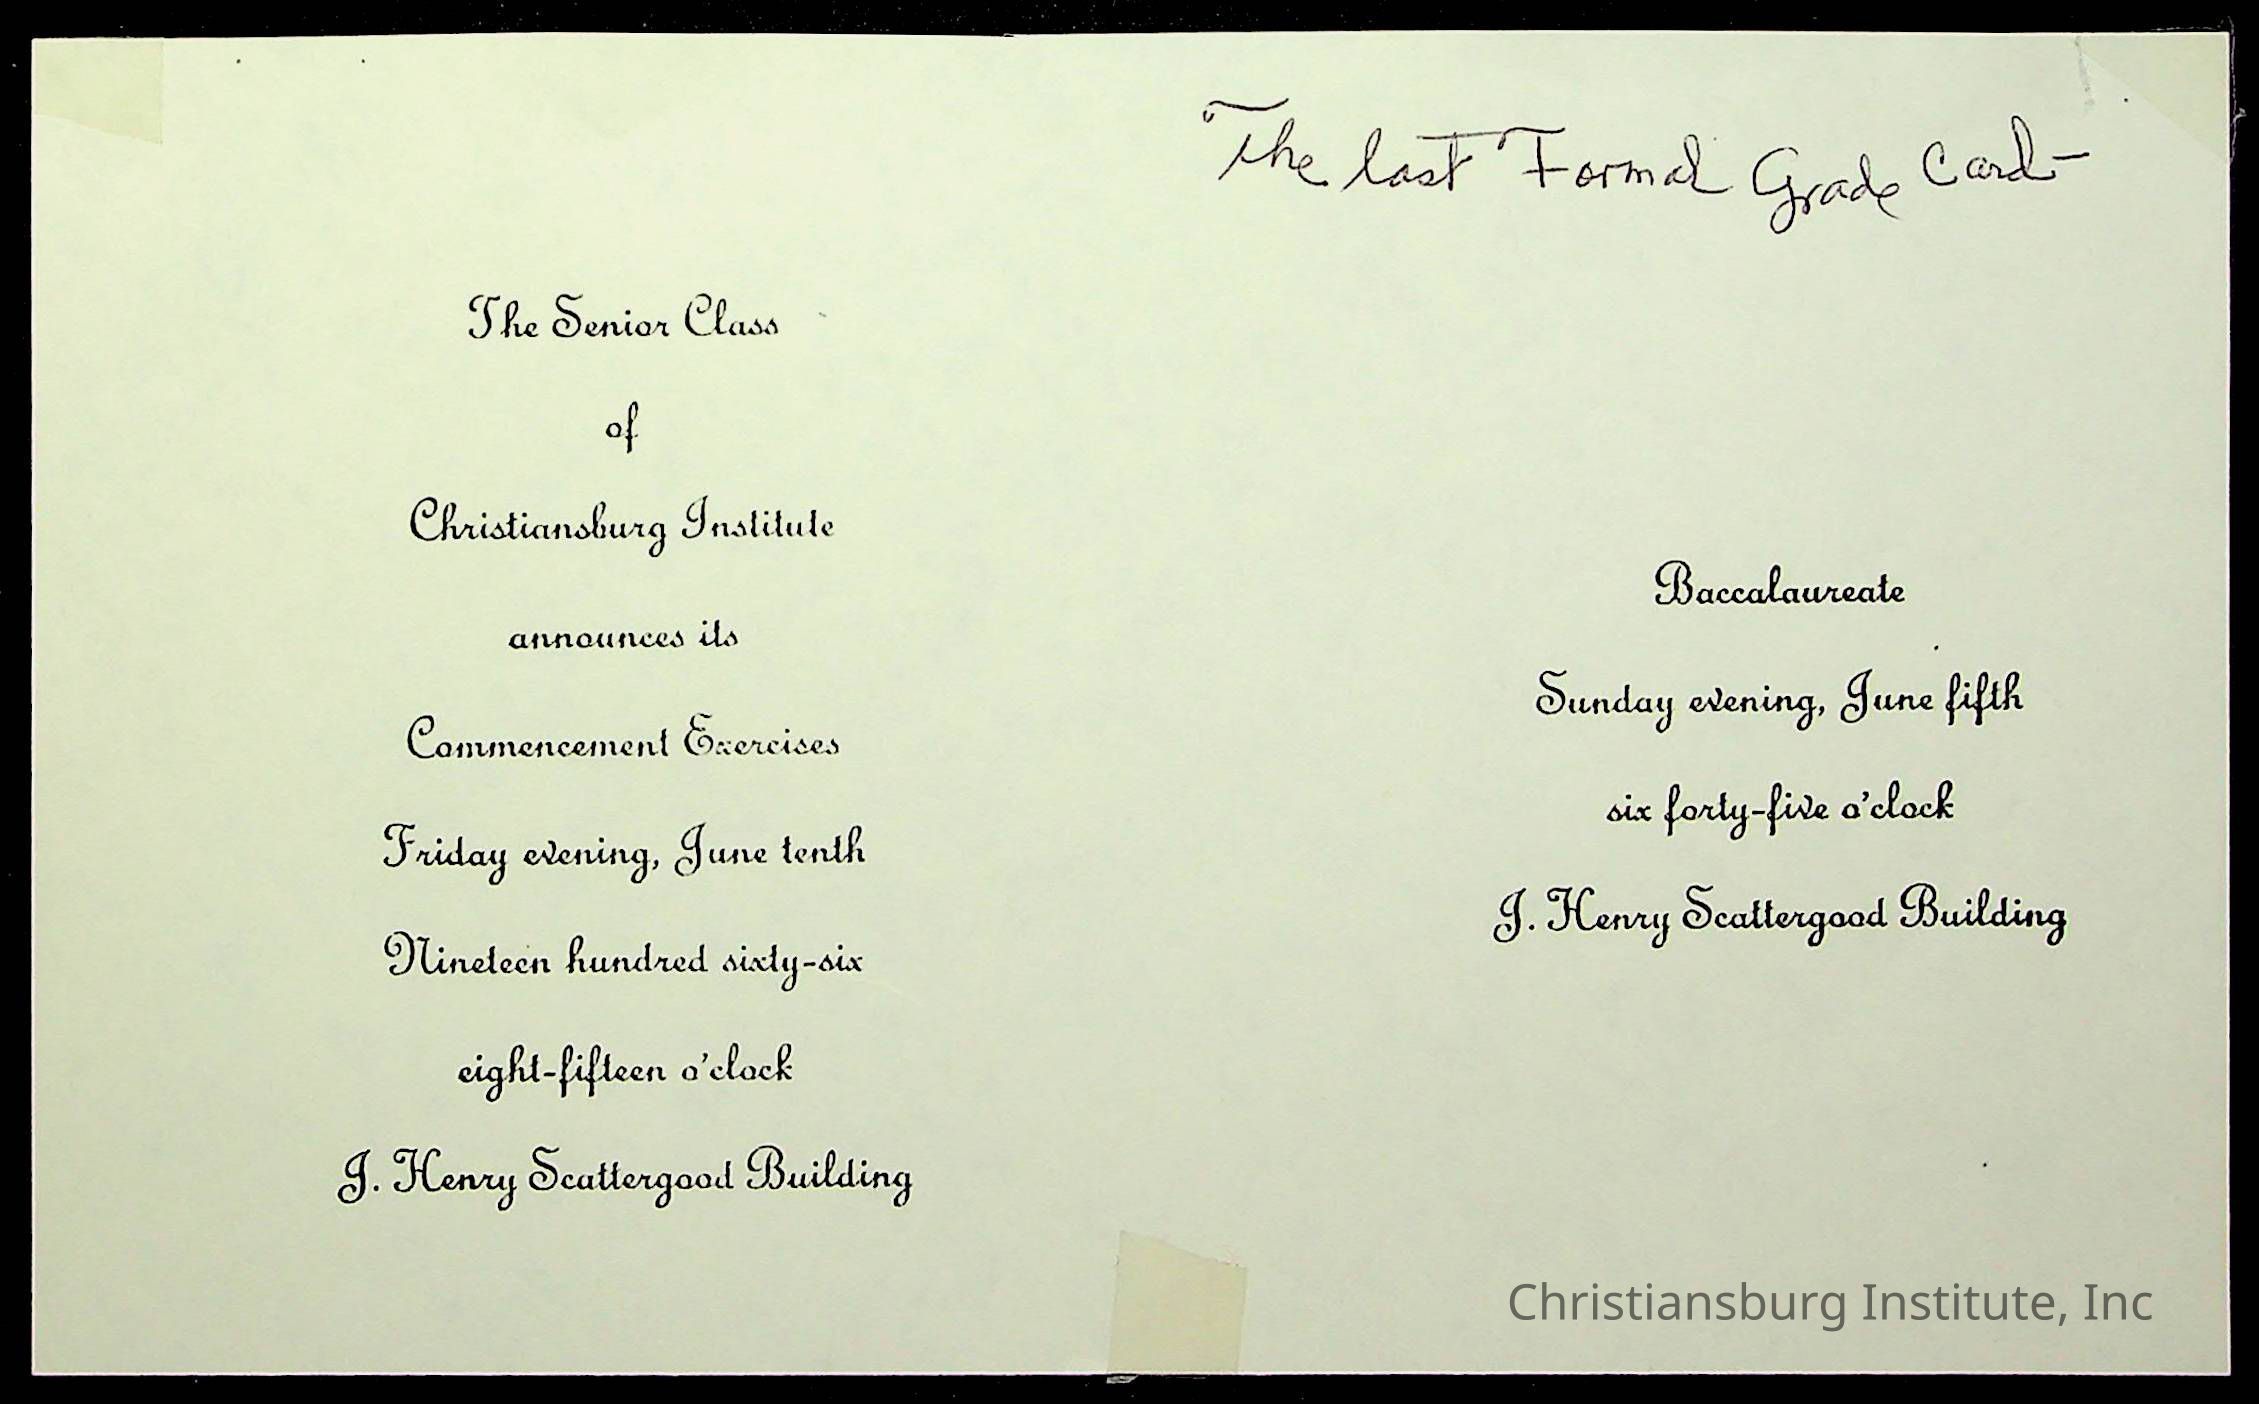 The last Formal Grade Card-
The Senior Class
of
Christiansburg Institute
announces its
Commencement Exercises
Friday evening, June tenth
Nineteen hundred sixty-six
eight-fifteen o'clock
J. Henry Scattergood Building
Baccalaureate
Sunday evening, June fifth
six forty-five o'clock
J. Henry Scattergood Building
Christiansburg Institute, Inc